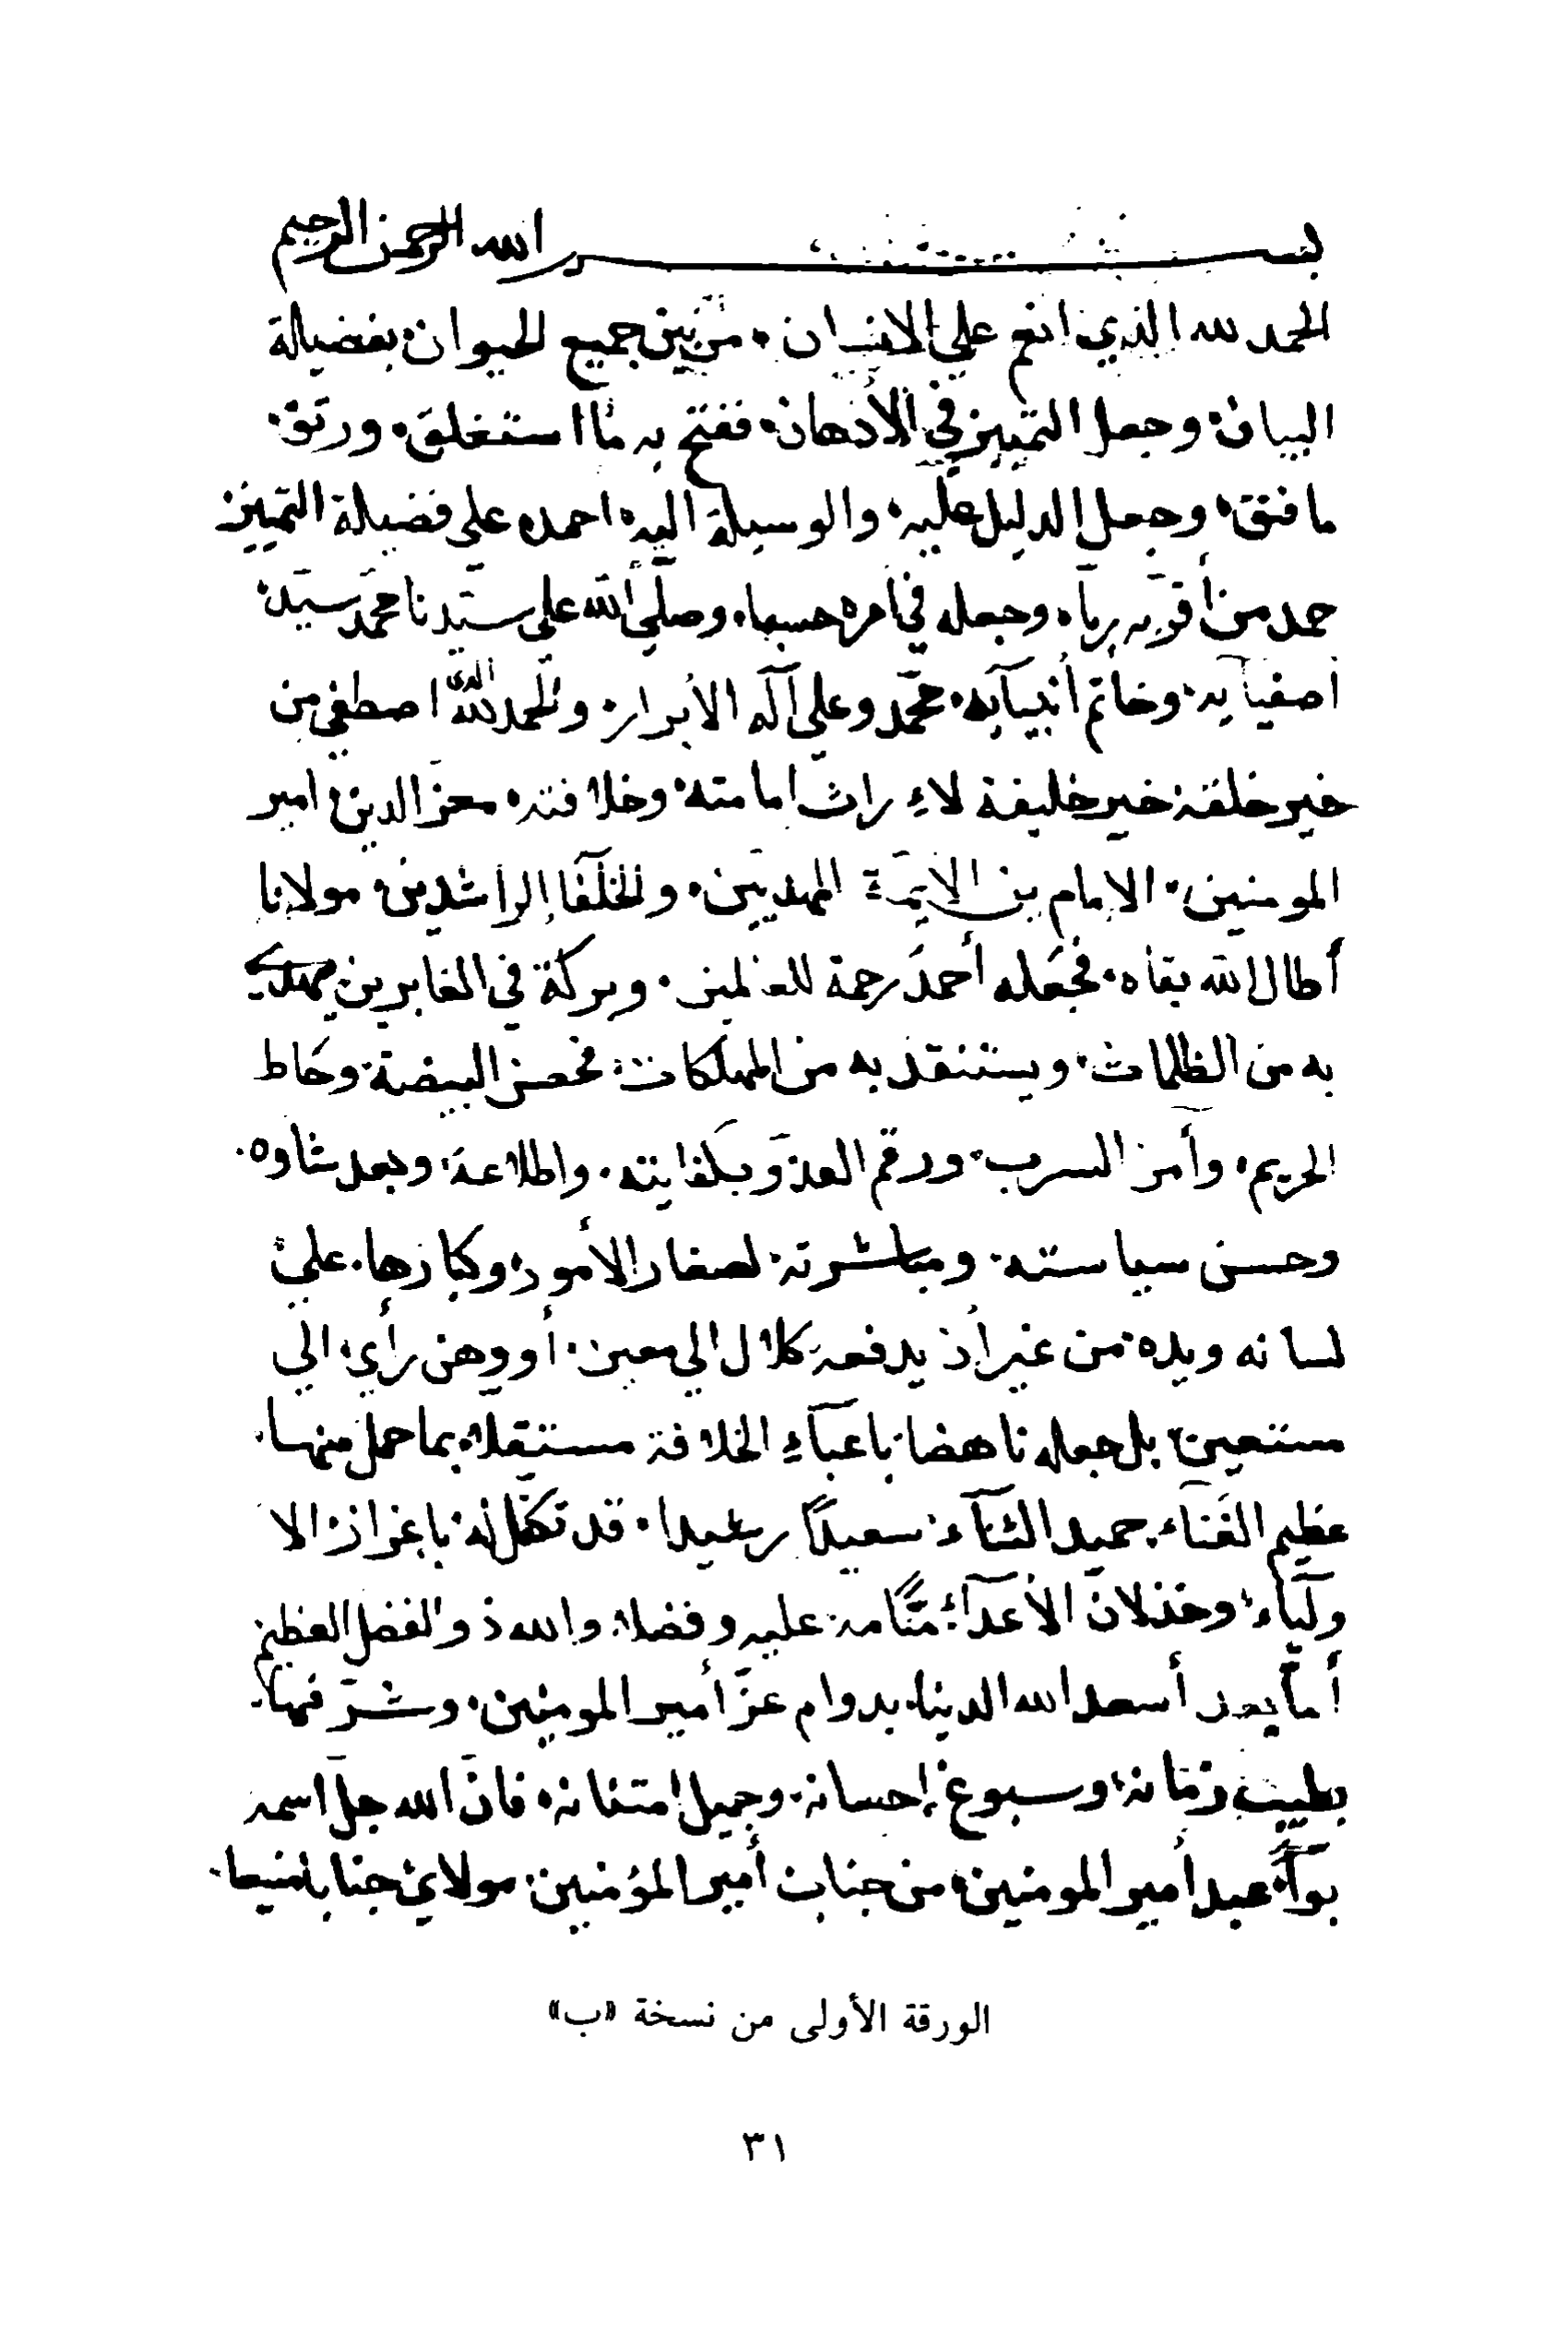 بسم الله الرحمن الرحيم
الحمد لله الذي انعم علي الانسان من بين جميع الحيوان بفضيلة
البيان وجعل التمييز في الأذهان ففتح به ما استغلق ورتق
ما فتق وجعل الدليل عليه والوسيلة اليه احمده علي فضيلة التمييز
حمد من أقر به ربا وجعله في امره حسبما وصلي الله علي سيدنا محمد سيد
اصفيآيه وخاتم أنبيآيه محمد وعلي آله الأبرار والحمد لله الذي اصطفي من
خير خلقه خير خليفة لاءراث امامته وخلافته معز الدين امير
المومنين الامام بن الايمة المهديين والخلفآ الراشدين مولانا
أطال الله بقاه فجعله أحمد رحمة للعالمين وبركة في الغابرين يهتدي
به من الظلمات ويستنقذ به من المهلكات فحصن البيضة وحاط
الحريم وأمن السرب ورقم العدو بكفايته واطلاعه وبعد شاوه
وحسن سياسته ومباشرته لصغار الأمور وكبارها علي
لسانه ويده من غير أن يدفعه كلال الي معين أو وهن رأي الي
مستعين بل جعله ناهضا باعبآء الخلافة مستقلا بما حمل منها
عظيم الغنآء حميد الثنآء سعيداً رغيدا قد تكفل له باعزاز الا
ولآيآء وخذلان الأعدآء منّاً منه عليه وفضلا والله ذو الفضل العظيم
أما بعد أسعد الله الدنيا بدوام عزّ أمير المومنين وشرّفها
بطيب زمانه وسبوغ إحسانه وجميل امتنانه فان الله جل اسمه
بوأ عبد أمير المومنين من جناب أمير المؤمنين مولاي جنابا منيعا
الورقة الأولى من نسخة «ب»
٣١